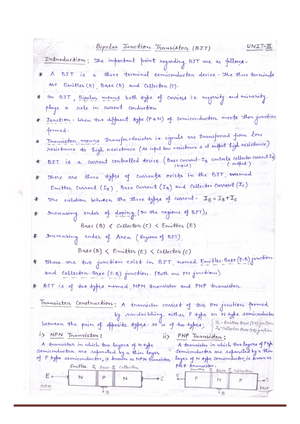 Bipolar Junction Transistor (BJT) UNIT-III
Introduction: The important point regarding BJT are as follows-
* A BJT is a three terminal semiconductor device. The three terminals
are Emitter (E), Base (B) and Collector (C).
* In BJT, Bipolar means both type of carriers i.e. majority and minority
plays a role in current conduction
* Junction: When two different type (P & N) of Semiconductor meets then junction
formed.
* Transistor means Transfer-resistor i.e. signals are transferred from low
resistance to high resistance (As input low resistance & at output high resistance)
* BJT is a current controlled device (Base current-IB controls collector current IC)
(input) (output)
* There are three types of currents exists in the BJT, named
Emitter Current (IE), Base Current (IB) and Collector Current (IC)
* The relation between the three types of current - IE = IB + IC
* Increasing order of doping (In the regions of BJT),
Base (B) < Collector (C) < Emitter (E)
* Increasing order of Area (Regions of BJT)
Base (B) < Emitter (E) < Collector (C)
* There are two junction exist in BJT, named Emitter-Base (E-B) junction
and Collector-Base (C-B) junction. (Both are PN junctions)
* BJT is of two types named NPN transistor and PNP transistor.
Transistor Construction: A transistor consist of two PN junction formed
by sandwiching either P type or N type semiconductor
between the pair of opposite types. It is of two types;
i) NPN Transistor: ii) PNP Transistor:
A transistor in which two layers of N type A transistor in which two layers of P type
Semiconductor are separated by a thin layer Semiconductor are separated by a thin
of P type semiconductor, is known as NPN transistor. layer of N type semiconductor, is known as
PNP transistor.
Emitter Base Collector Emitter Base Collector
E N P N C E P N P C
NPN B B PNP